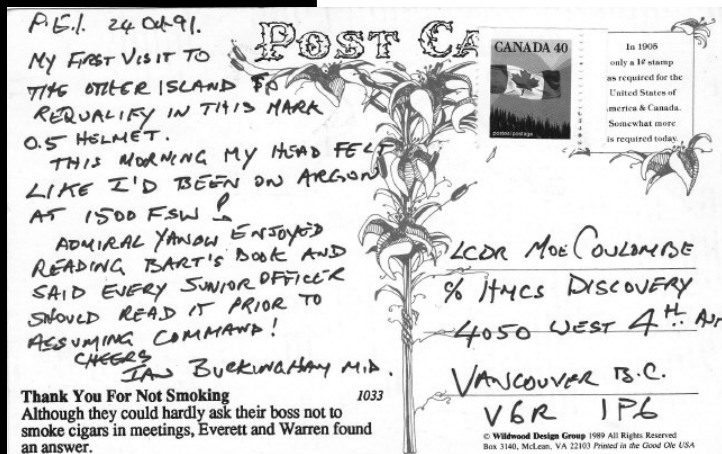 P.E.I. 24 Oct 91.
MY FIRST VISIT TO
THE OTHER ISLAND TO
REQUALIFY IN THIS MARK
0.5 HELMET.
THIS MORNING MY HEAD FELT
LIKE I'D BEEN ON ARGON
AT 1500 FSW!
ADMIRAL YANOW ENJOYED
READING BART'S BOOK AND
SAID EVERY JUNIOR OFFICER
SHOULD READ IT PRIOR TO
ASSUMING COMMAND!
CHEERS
IAN BUCKINGHAM M.D.
Thank You For Not Smoking 1033
Although they could hardly ask their boss not to
smoke cigars in meetings, Everett and Warren found
an answer.
POST CA
CANADA 40
postes/postage
In 1905
only a 1¢ stamp
as required for the
United States of
merica & Canada.
Somewhat more
is required today.
LCDR MOE COULOMBE
% HMCS DISCOVERY
4050 WEST 4TH AVE
VANCOUVER B.C.
V6R 1P6
© Wildwood Design Group 1989 All Rights Reserved
Box 3140, McLean, VA 22103 Printed in the Good Ole USA